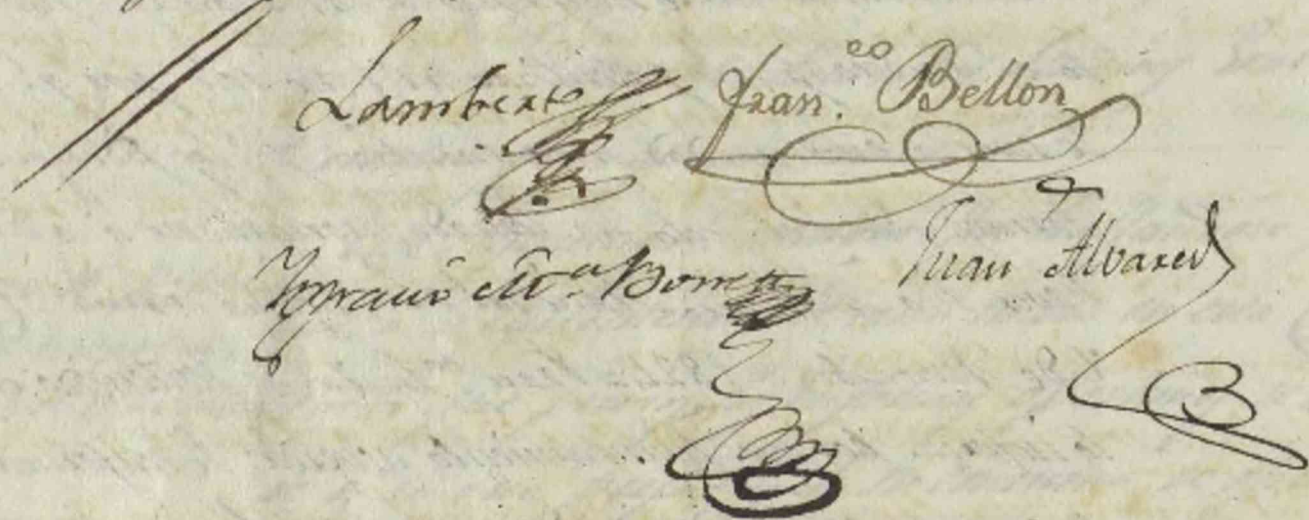 Lambert Fran.co Bellon
Ygnacio M.a Bonett Juan Alvarez